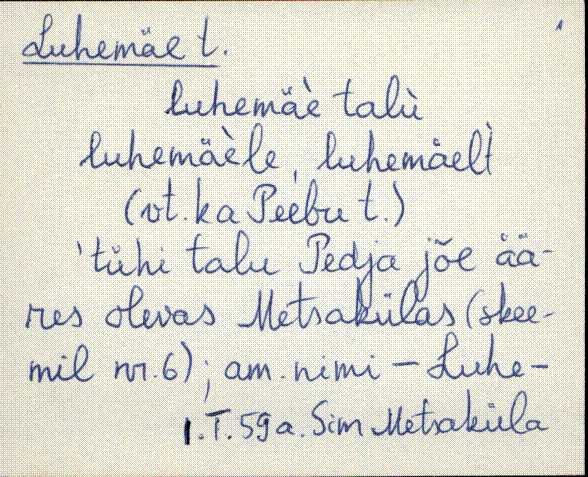 Luhemäe t.
luhemäè talù
luhemäèle, luhemäelt̀
(vt. ka Peebu t.)
'tühi talu Pedja jõe ää-
res olevas Metsakülas (skee-
mil nr. 6); am. nimi - Luhe-
I.T. 59 a. Sim Metsaküla